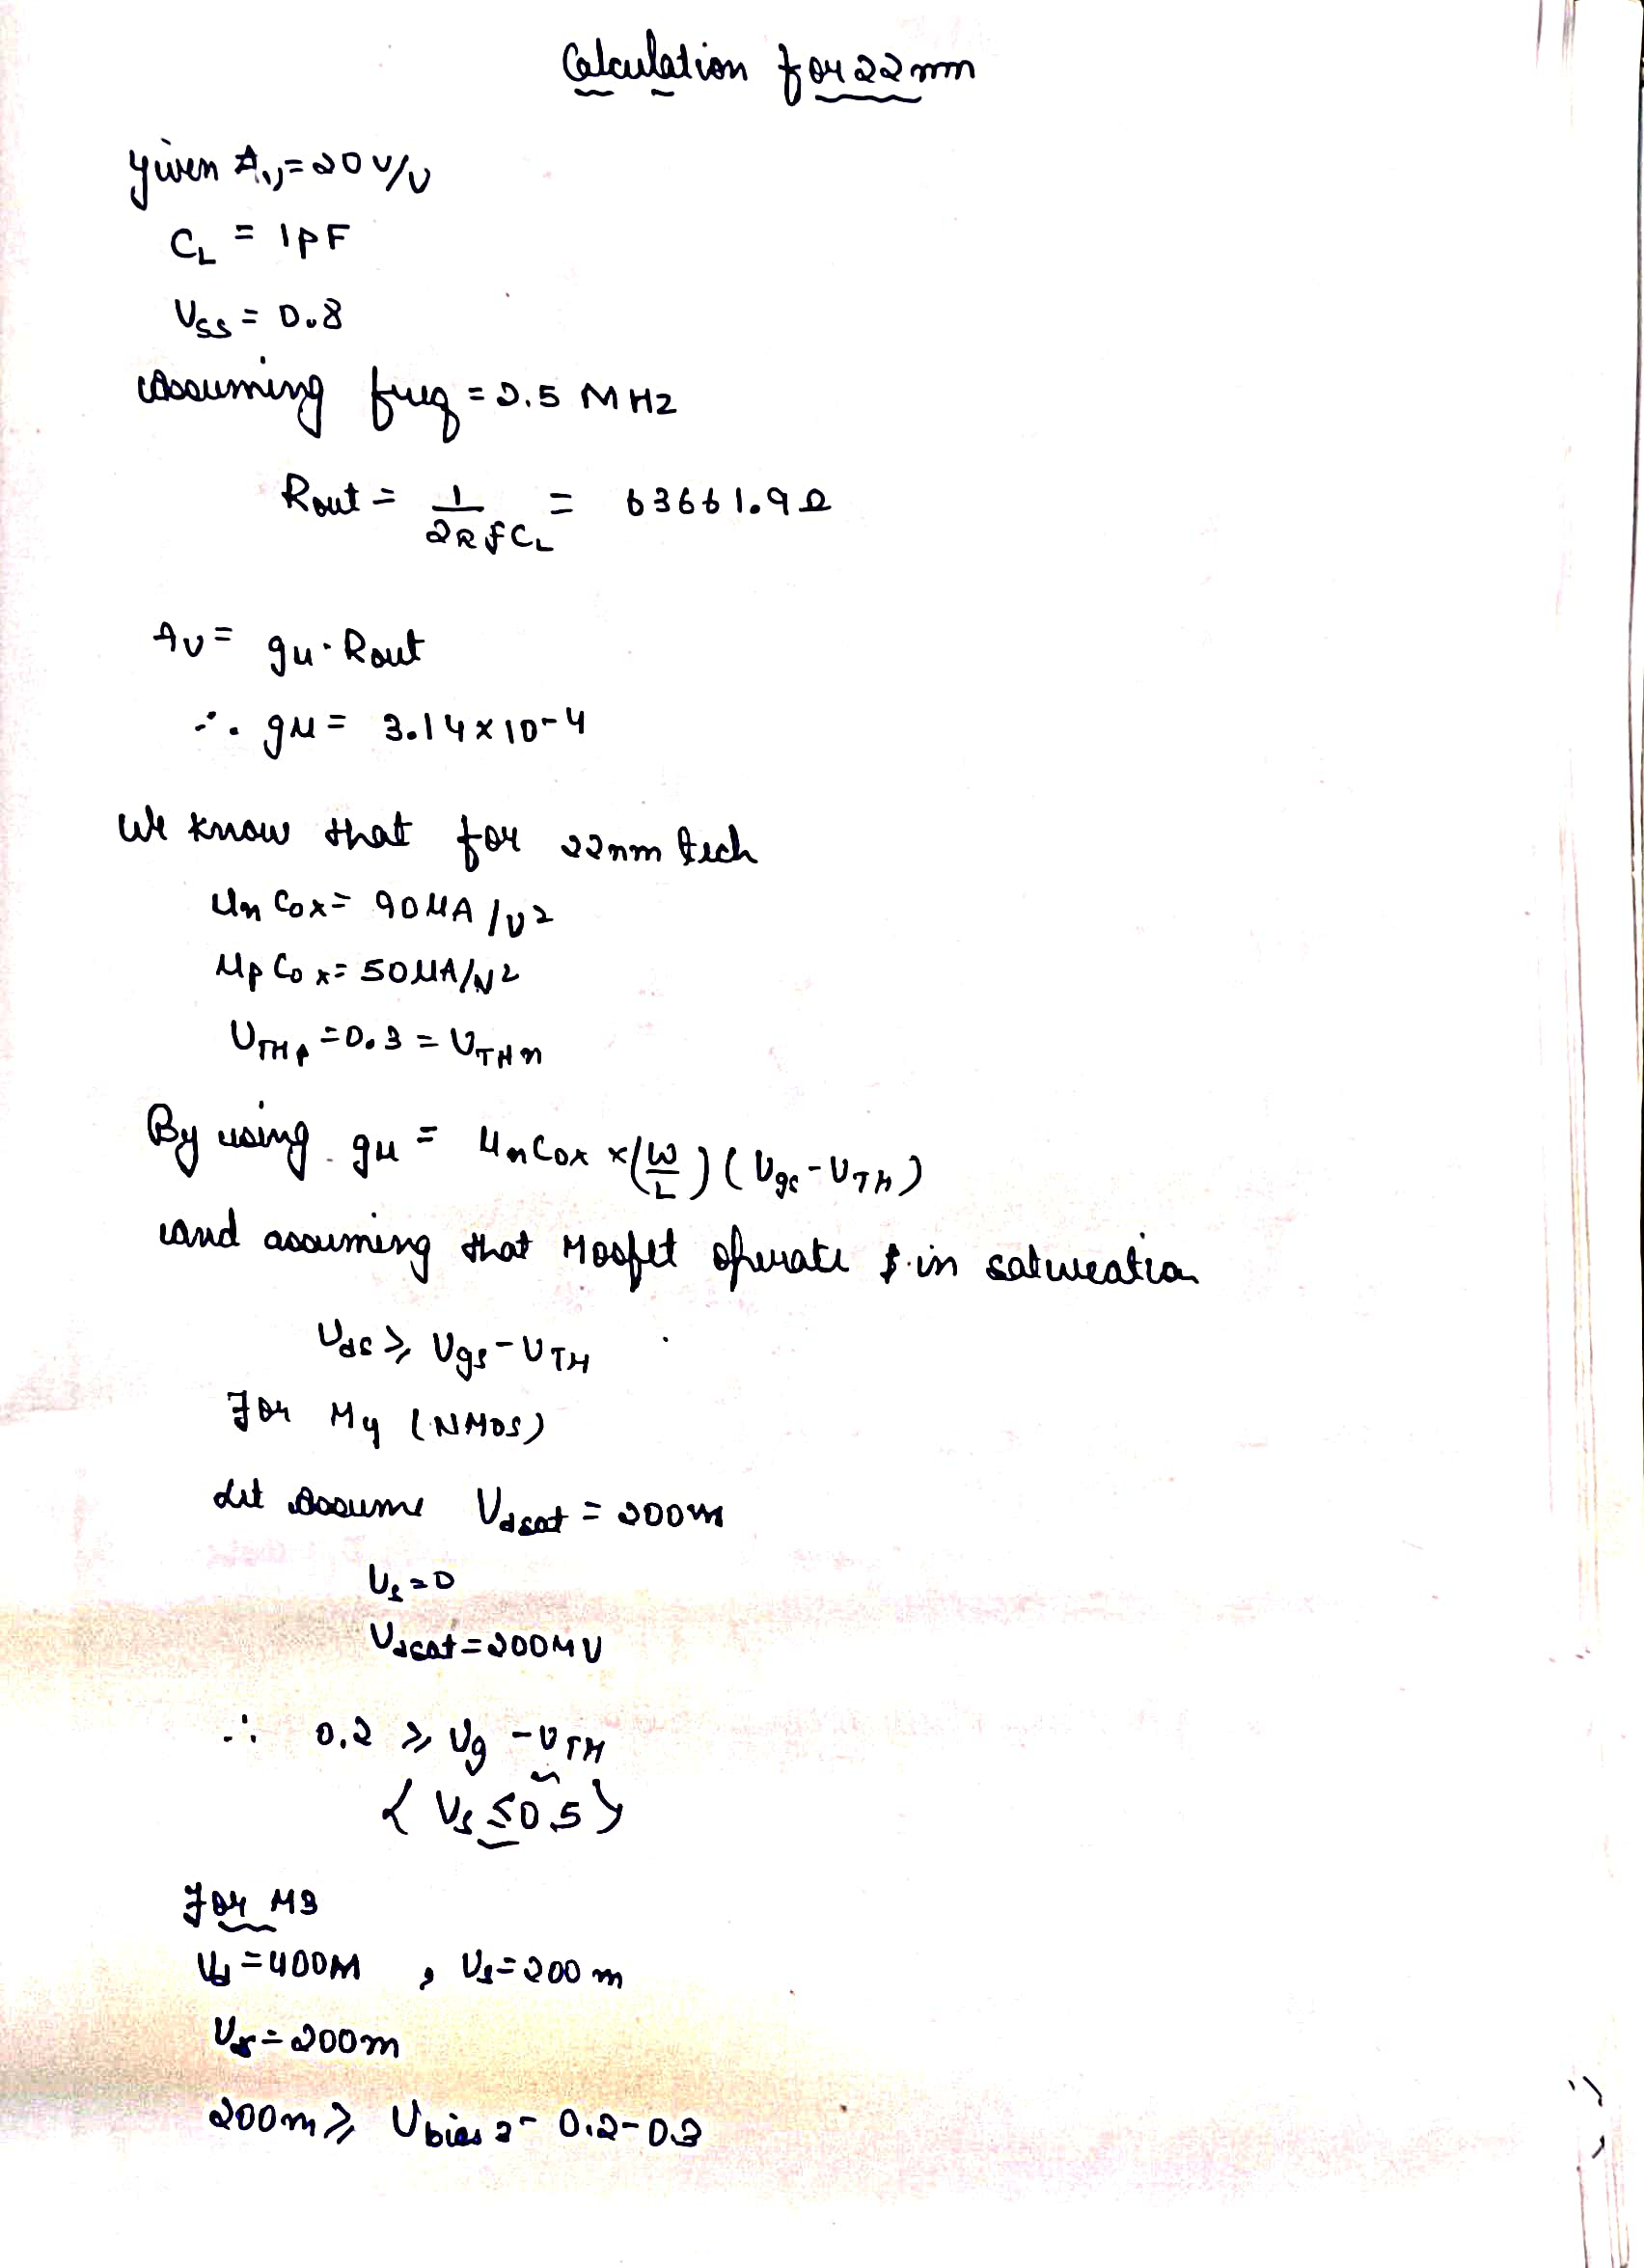 Calculation for 22nm
given Av = 20 V/V
CL = 1pF
Vss = 0.8
Assuming freq = 2.5 MHz
Rout = 1/2πfCL = 63661.9Ω
Av = gm · Rout
∴ gm = 3.14 x 10-4
We know that for 22nm tech
μn Cox = 90 μA/V2
μp Cox = 50 μA/V2
VTHP = 0.3 = VTHn
By using gm = μnCox x (W/L) (Vgs - VTH)
and assuming that Mosfet operate in saturation
Vds ≥ Vgs - VTH
For M4 (NMOS)
Let Assume Vdsat = 200m
Vs = 0
Vdsat = 200mV
∴ 0.2 ≥ Vg - VTH
{ Vs ≤ 0.5 }
For M3
Vd = 400m , Vs = 200m
Vds = 200m
200m ≥ Vbias2 - 0.2 - 0.3